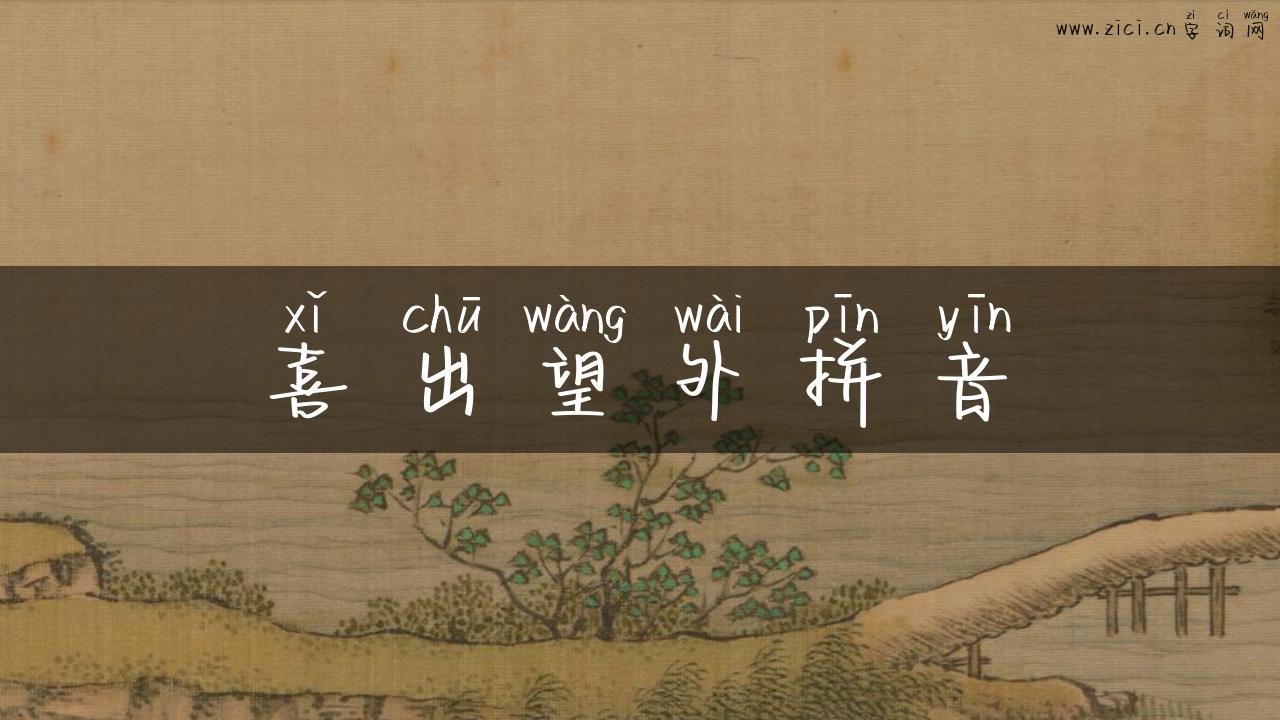 zì cí wǎng
www.zici.cn 字 词 网
xǐ chū wàng wài pīn yīn
喜 出 望 外 拼 音